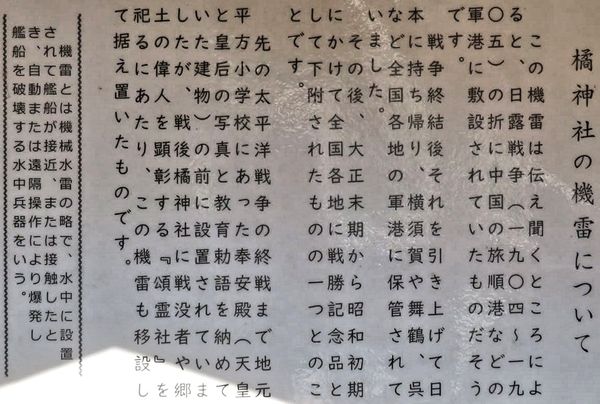 橘神社の機雷について
この機雷は伝え聞くところによ
ると、日露戦争(一九〇四～一九
〇五)の折に中国の旅順港などの
軍港に敷設されていたものだそう
です。
戦争終結後それを引き上げて日
本に持ち帰り、横須賀や舞鶴、呉
など全国各地の軍港に保管されて
いました。
その後、大正末期から昭和初期
にかけて全国各地に戦勝記念品と
して下附されたものの一つとのこ
とです。
先の太平洋戦争の終戦まで地元
平方小学校にあった奉安殿(天皇
と皇后の写真と教育勅語を納めて
いた建物)の前に設置されていま
したが、戦後橘神社に戦没者や郷
土の偉人を顕彰する『頌霊社』を
祀るにあたり、この機雷も移設し
て据え置いたものです。
機雷とは機械水雷の略で、水中に設置
され、艦船が接近、または接触したと
き、自動または遠隔操作により爆発し
艦船を破壊する水中兵器をいう。